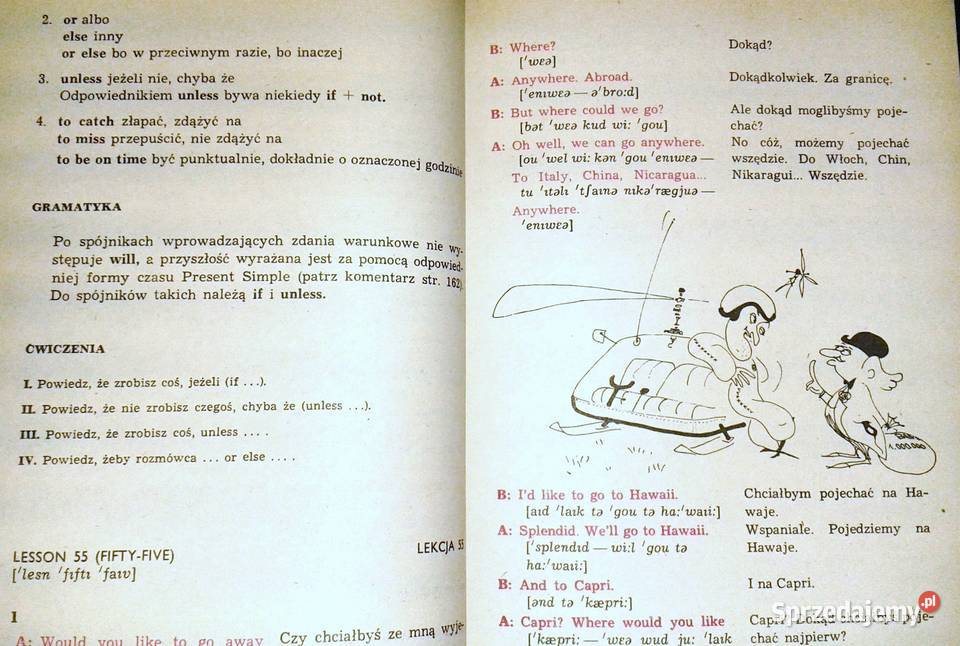 2. or albo
else inny
or else bo w przeciwnym razie, bo inaczej
3. unless jeżeli nie, chyba że
Odpowiednikiem unless bywa niekiedy if + not.
4. to catch złapać, zdążyć na
to miss przepuścić, nie zdążyć na
to be on time być punktualnie, dokładnie o oznaczonej godzinie
GRAMATYKA
Po spójnikach wprowadzających zdania warunkowe nie wy-
stępuje will, a przyszłość wyrażana jest za pomocą odpowied-
niej formy czasu Present Simple (patrz komentarz str. 162).
Do spójników takich należą if i unless.
ĆWICZENIA
I. Powiedz, że zrobisz coś, jeżeli (if ...).
II. Powiedz, że nie zrobisz czegoś, chyba że (unless ...).
III. Powiedz, że zrobisz coś, unless ... .
IV. Powiedz, żeby rozmówca ... or else ... .
LESSON 55 (FIFTY-FIVE) LEKCJA 55
['lesn 'fıftı 'faıv]
I
A: Would you like to go away Czy chciałbyś ze mną wyje-
B: Where? Dokąd?
['wɛə]
A: Anywhere. Abroad. Dokądkolwiek. Za granicę.
['enıwɛə — ə'bro:d]
B: But where could we go? Ale dokąd moglibyśmy poje-
[bət 'wɛə kud wi: 'gou] chać?
A: Oh well, we can go anywhere. No cóż, możemy pojechać
[ou 'wel wi: kən 'gou 'enıwɛə — wszędzie. Do Włoch, Chin,
To Italy, China, Nicaragua... Nikaragui... Wszędzie.
tu 'ıtəlı 'tʃaınə nıkə'rægjuə —
Anywhere.
'enıwɛə]
1.000.000
B: I'd like to go to Hawaii. Chciałbym pojechać na Ha-
[aıd 'laık tə 'gou tə ha:'waıi:] waje.
A: Splendid. We'll go to Hawaii. Wspaniale. Pojedziemy na
['splendıd — wi:l 'gou tə Hawaje.
ha:'waıi:]
B: And to Capri. I na Capri.
[ənd tə 'kæpri:]
A: Capri? Where would you like Capri? Dokąd chciałbyś poje-
['kæpri: — 'wɛə wud ju: 'laık chać najpierw?
Sprzedajemy.pl